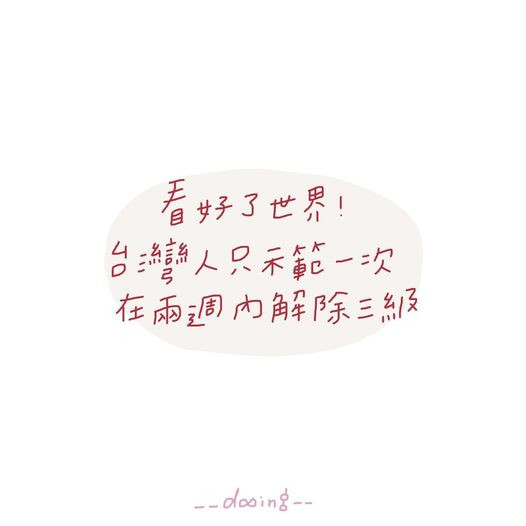 看好了世界!
台灣人只示範一次
在兩週內解除三級
__dosing--